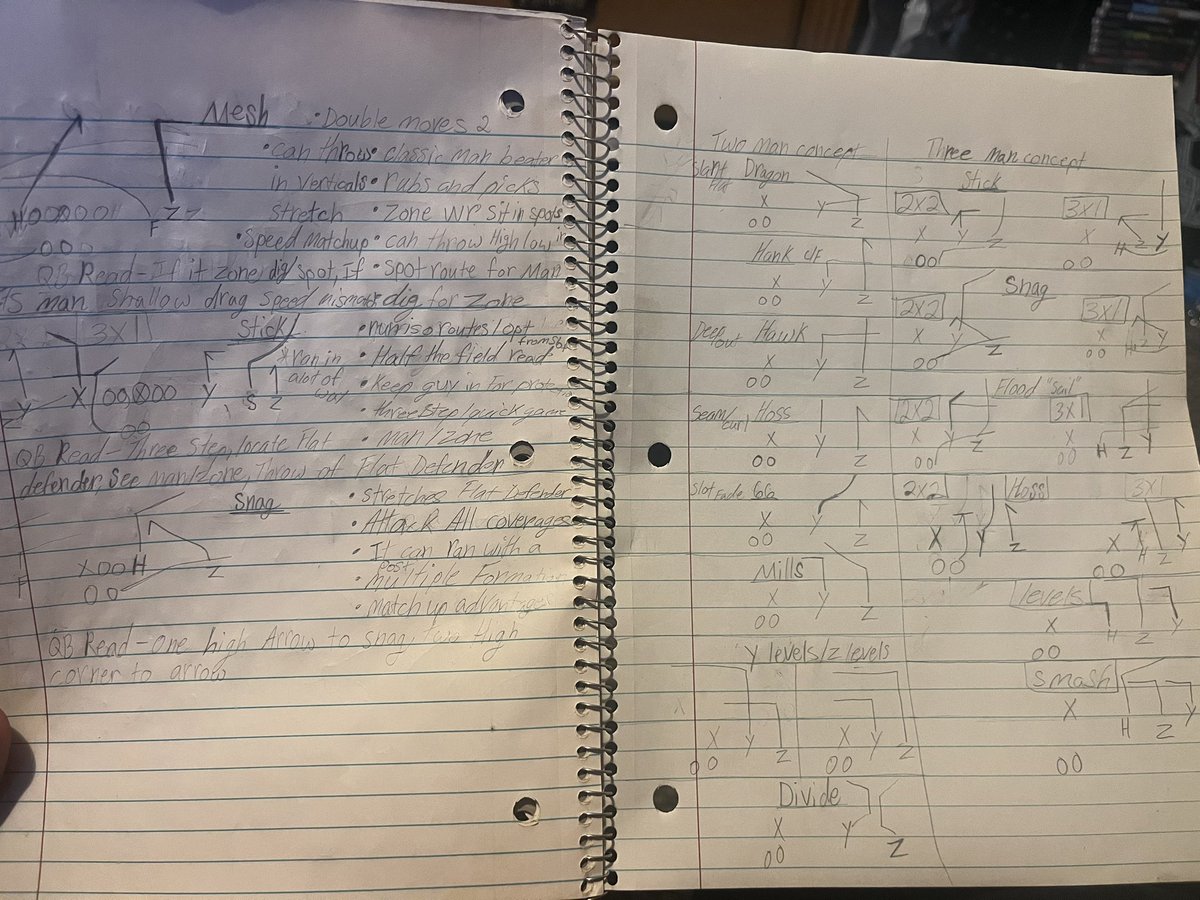 Mesh • Double moves 2
• can throw • classic man beater
in verticals • rubs and picks
stretch • zone WR sit in spots
• Speed matchup • can throw High low in
F Z
QB Read - If it zone, dig/spot, If • spot route for Man
is man shallow drag speed mismatch dig for zone
3X1 Stick • run iso routes/opt from
*Ran in • Half the field read
a lot of way • Keep guy in for protection
Y X Y S Z • three step/quick game
QB Read - Three Step, locate Flat • man/zone
defender, See man/zone, Throw of Flat Defender
Snag • stretches Flat Defender
• Attack All coverages
F X O O H Z • It can ran with a
O O post
• multiple Formation
• match up advantages
QB Read - one high Arrow to snag, two High
corner to arrow
Two man concept
Slant Flat Dragon
X Y Z
O O
Hank
X Y Z
O O
Deep out Hawk
X Y Z
O O
Seam/curl Hoss
X Y Z
O O
Slot Fade 66
X Y Z
O O
Mills
X Y Z
O O
Y levels/Z levels
X Y Z X Y Z
O O O O
Divide
X Y Z
O O
Three man concept
Stick
2X2 3X1
X Y Z X H Z Y
O O O O
Snag
2X2 3X1
X Y Z X H Z Y
O O O O
Flood "Sail"
2X2 3X1
X Y Z X H Z Y
O O O O
2X2 Hoss 3X1
X Y Z X H Z Y
O O O O
levels
X H Z Y
O O
Smash
X H Z Y
O O